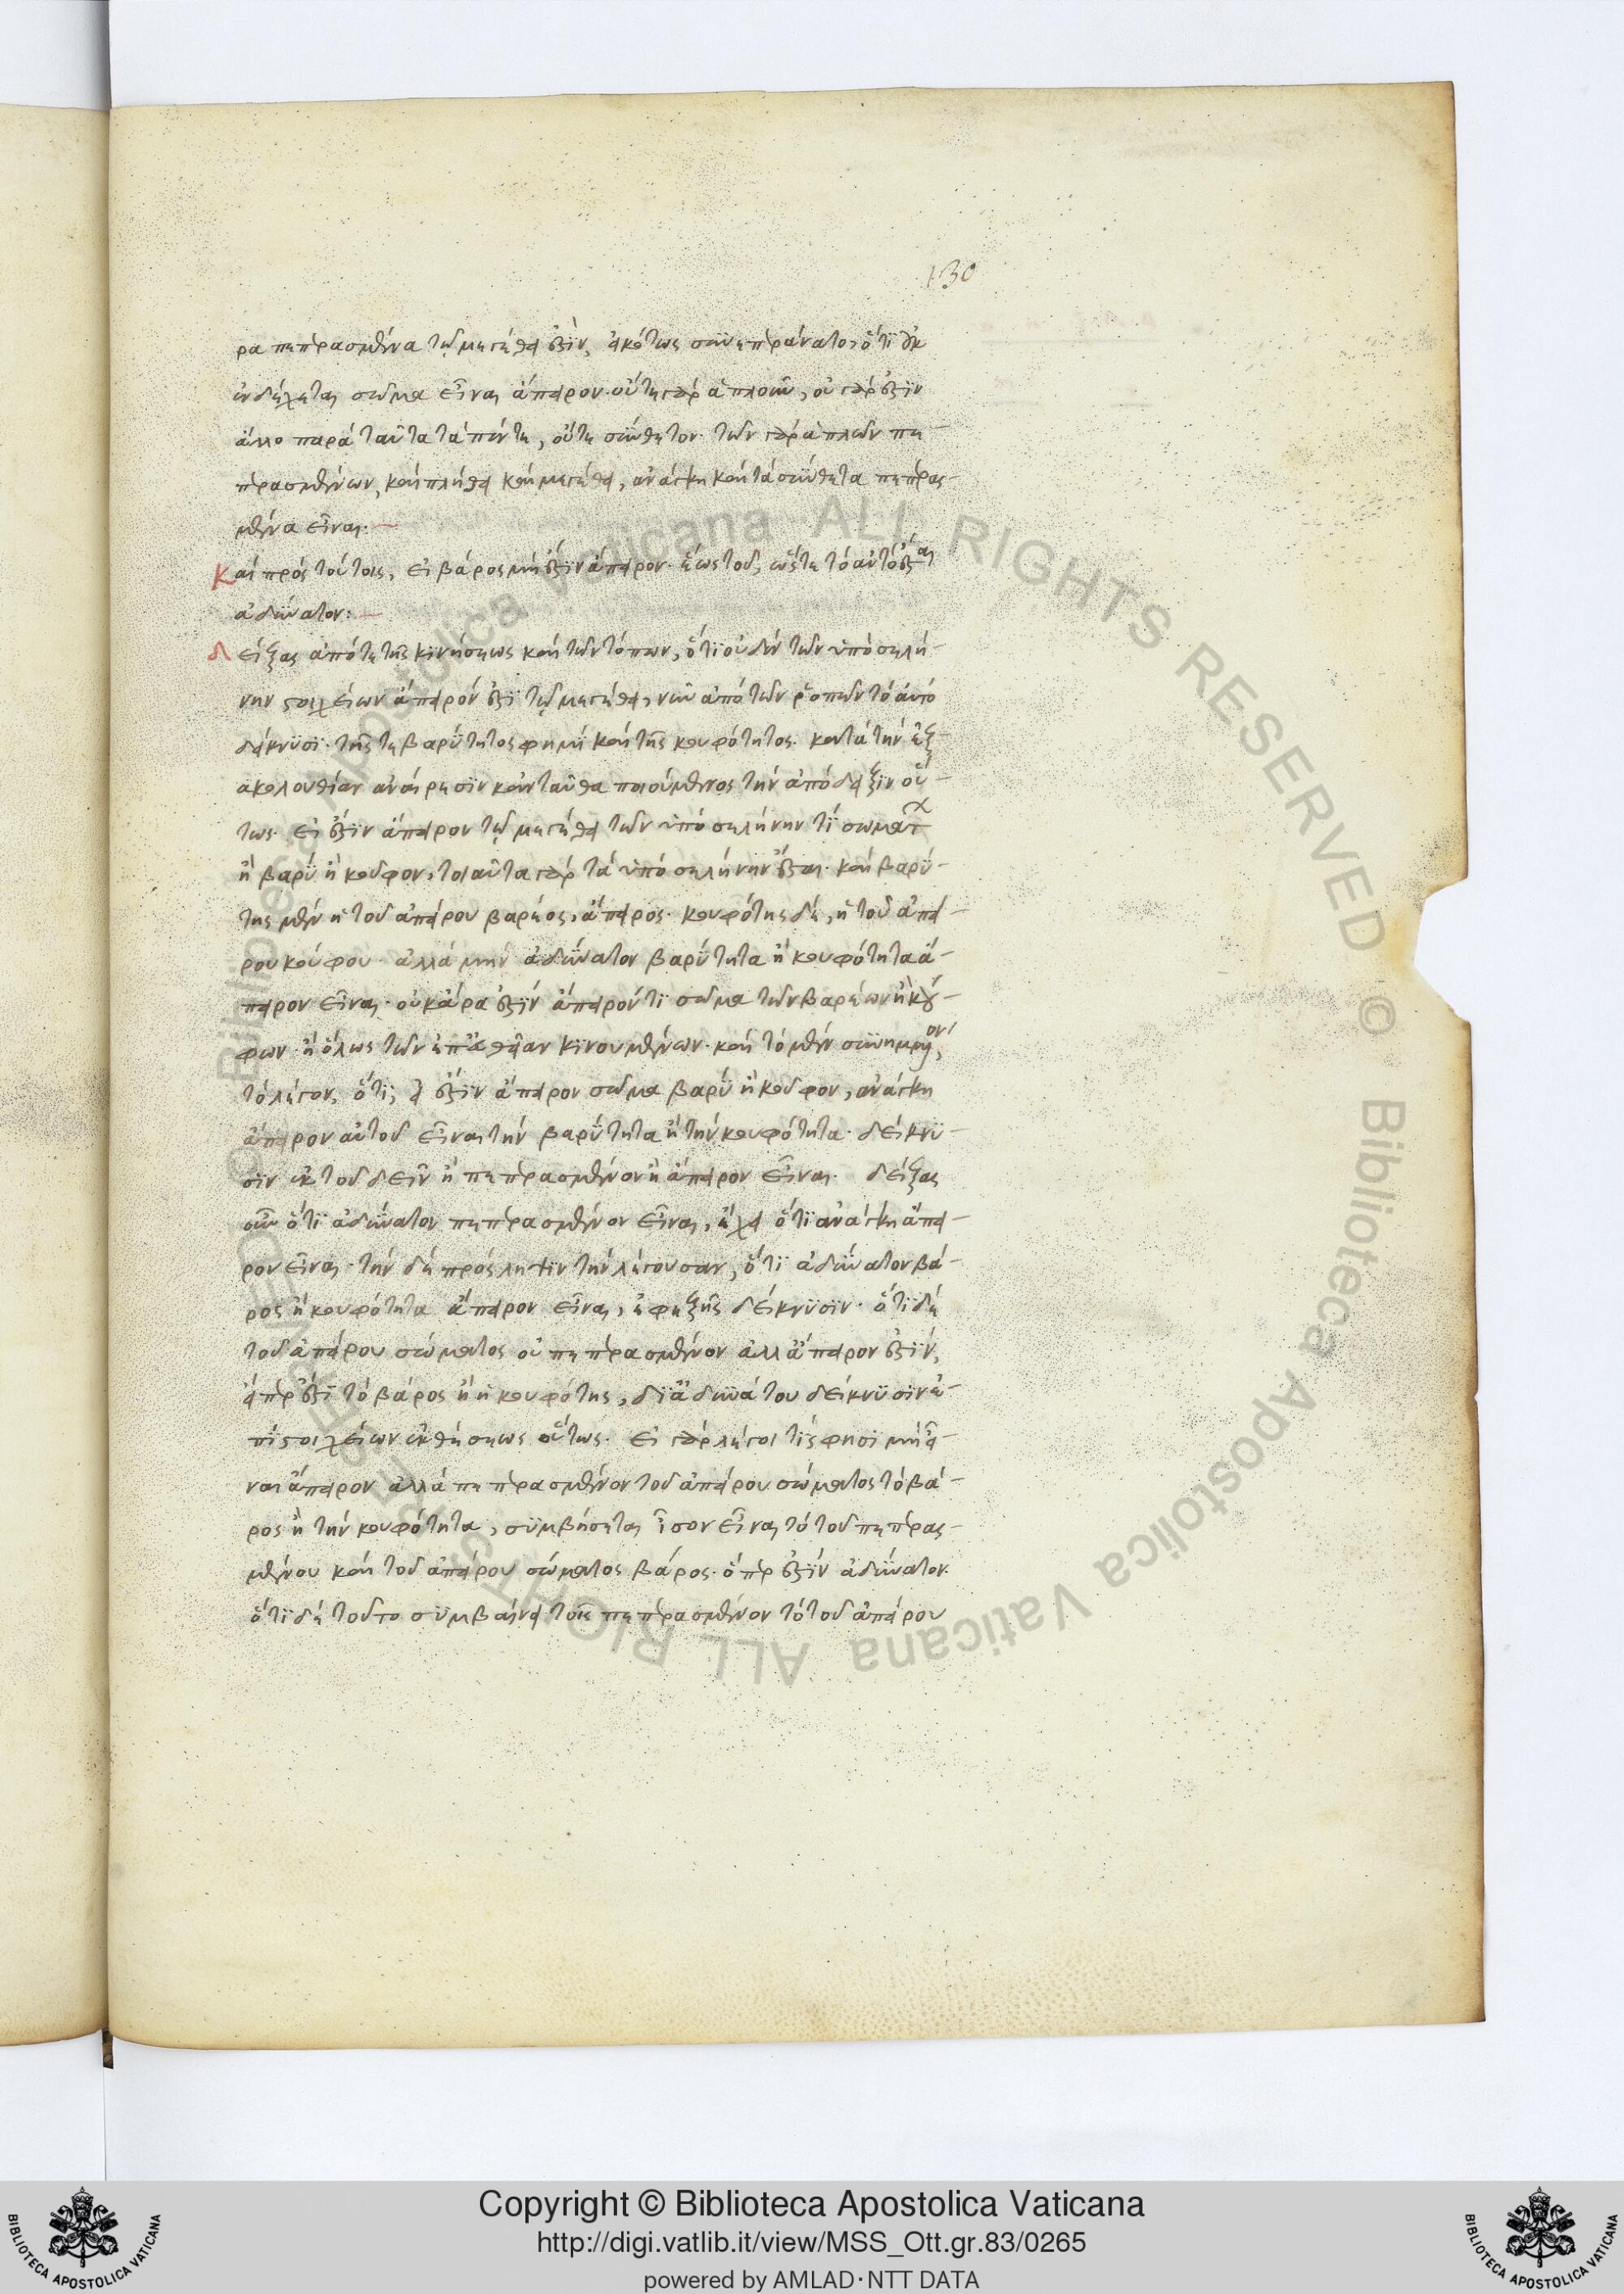 130
ρα πεπερασμένα τῷ μεγέθει ἐστὶν, εἰκότως συνεπεράνατο, ὅτι οὐκ
ἐνδέχεται σῶμα εἶναι ἄπειρον. οὔτε γὰρ ἁπλοῦν, οὐ γάρ ἐστιν
ἄλλο παρὰ ταῦτα τὰ πέντε, οὔτε σύνθετον. τῶν γὰρ ἁπλῶν πε-
περασμένων, καὶ πλήθει καὶ μεγέθει, ἀνάγκη καὶ τὰ σύνθετα πεπερασ-
μένα εἶναι.
Καὶ πρὸς τούτοις, εἰ βάρος μή ἐστιν ἄπειρον. ἕως τοῦ, ὥστε τὸ αὐτὸ ἔσται
ἀδύνατον:
Δείξας ἀπό τε τῆς κινήσεως καὶ τῶν τόπων, ὅτι οὐδὲν τῶν ὑπὸ σελή-
νην στοιχείων ἄπειρόν ἐστι τῷ μεγέθει, νῦν ἀπὸ τῶν ῥοπῶν τὸ αὐτὸ
δείκνυσι. τῆς τε βαρύτητος φημὶ καὶ τῆς κουφότητος. κατὰ τὴν ἐξ-
ακολουθίαν ἀναίρεσιν κἀνταῦθα ποιούμενος τὴν ἀπόδειξιν οὕ-
τως. εἰ ἔστιν ἄπειρον τῷ μεγέθει τῶν ὑπὸ σελήνην τί σωμάτ
ἢ βαρὺ ἢ κοῦφον, τοιαῦτα γὰρ τὰ ὑπὸ σελήνην ἔσται. καὶ βαρύ-
της μὲν ἡ τοῦ ἀπείρου βαρέος, ἄπειρος. κουφότης δὲ, ἡ τοῦ ἀπεί-
ρου κούφου. ἀλλὰ μὴν ἀδύνατον βαρύτητα ἢ κουφότητα ἄ-
πειρον εἶναι. οὐκ ἄρα ἐστὶν ἄπειρόν τι σῶμα τῶν βαρέων ἢ κού-
φων. ἢ ὅλως τῶν ἐπ' εὐθεῖαν κινουμένων. καὶ τὸ μὲν συνημμένον,
τὸ λέγον, ὅτι, εἰ ἔστιν ἄπειρον σῶμα βαρὺ ἢ κοῦφον, ἀνάγκη
ἄπειρον αὐτοῦ εἶναι τὴν βαρύτητα ἢ τὴν κουφότητα. δείκνυ-
σιν ἐκ τοῦ δεῖν ἢ πεπερασμένον ἢ ἄπειρον εἶναι. δείξας
οὖν ὅτι ἀδύνατον πεπερασμένον εἶναι, ἔχει ὅτι ἀνάγκη ἄπει-
ρον εἶναι. τὴν δὲ πρόσληψιν τὴν λέγουσαν, ὅτι ἀδύνατον βά-
ρος ἢ κουφότητα ἄπειρον εἶναι, ἐφεξῆς δείκνυσιν. ὅτι δὲ
τοῦ ἀπείρου σώματος οὐ πεπερασμένον ἀλλ' ἄπειρον ἐστὶν,
εἴπερ ἐστὶ τὸ βάρος ἢ ἡ κουφότης, δι' ἀδυνάτου δείκνυσιν ἐ-
πὶ στοιχείων ἐκθέσεως οὕτως. εἰ γὰρ λέγοι τίς φησι μὴ εἶ-
ναι ἄπειρον ἀλλὰ πεπερασμένον τοῦ ἀπείρου σώματος τὸ βά-
ρος ἢ τὴν κουφότητα, συμβήσεται ἴσον εἶναι τὸ τοῦ πεπερασ-
μένου καὶ τοῦ ἀπείρου σώματος βάρος. ὅπερ ἐστὶν ἀδύνατον.
ὅτι δὲ τοῦτο συμβαίνει τοῖς πεπερασμένον τὸ τοῦ ἀπείρου
Copyright © Biblioteca Apostolica Vaticana
http://digi.vatlib.it/view/MSS_Ott.gr.83/0265
powered by AMLAD·NTT DATA